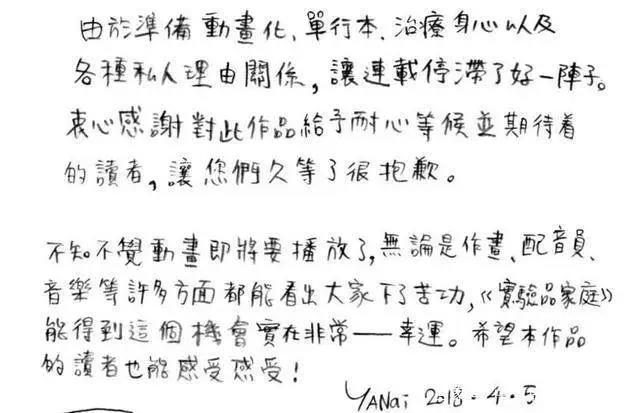 由於準備動畫化、單行本、治療身心以及
各種私人理由關係，讓連載停滯了好一陣子。
衷心感謝對此作品給予耐心等候並期待着
的讀者，讓您們久等了很抱歉。
不知不覺動畫即將要播放了，無論是作畫、配音員、
音樂等許多方面都能看出大家下了苦功，《實驗品家庭》
能得到這個機會實在非常——幸運。希望本作品
的讀者也能感受感受！
YANai 2018.4.5